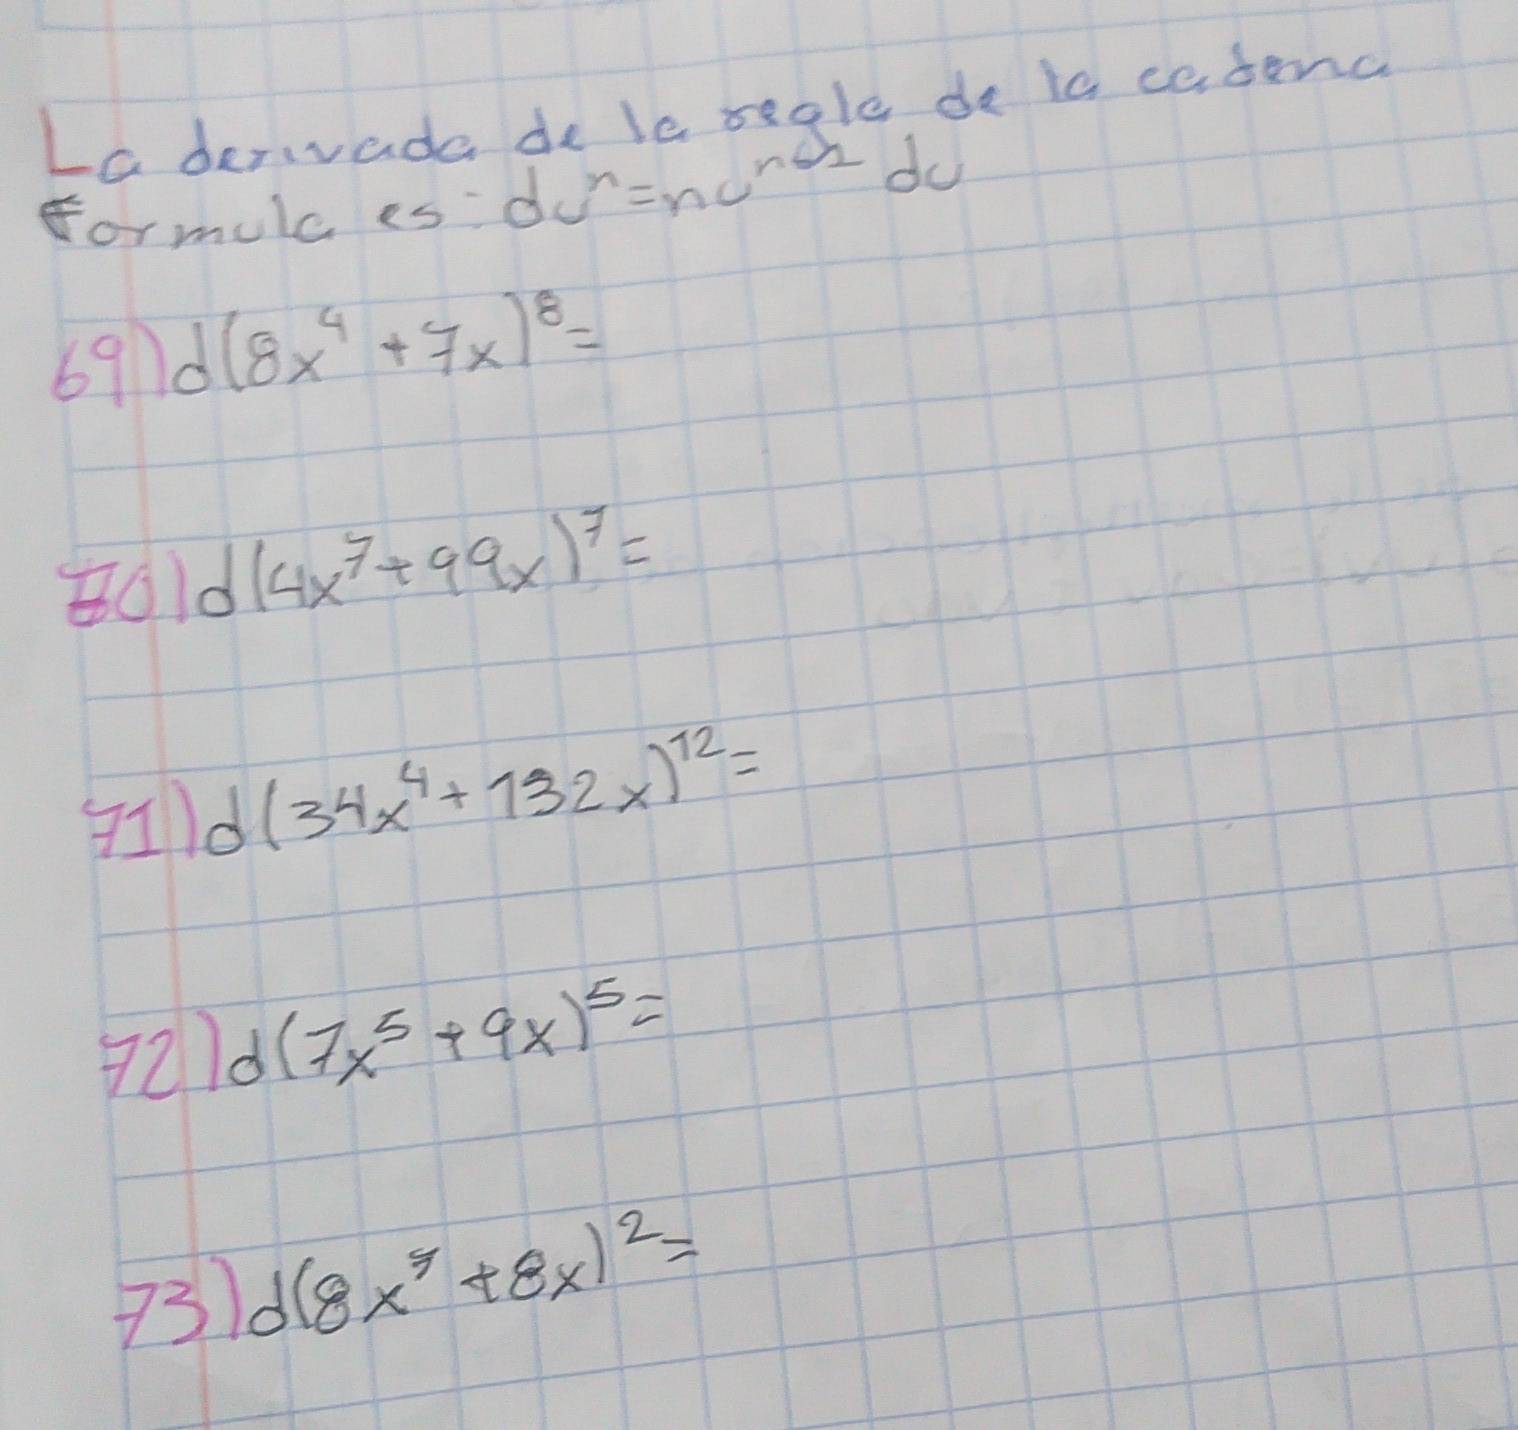 La derivada de la regla de la cadena
Formula es: duⁿ=nuⁿ⁻¹ du
69) d(8x⁴ +7x)⁸=
70) d(4x⁷+99x)⁷=
71) d(34x⁴+132x)¹²=
72) d(7x⁵+9x)⁵=
73) d(8x⁷+8x)²=